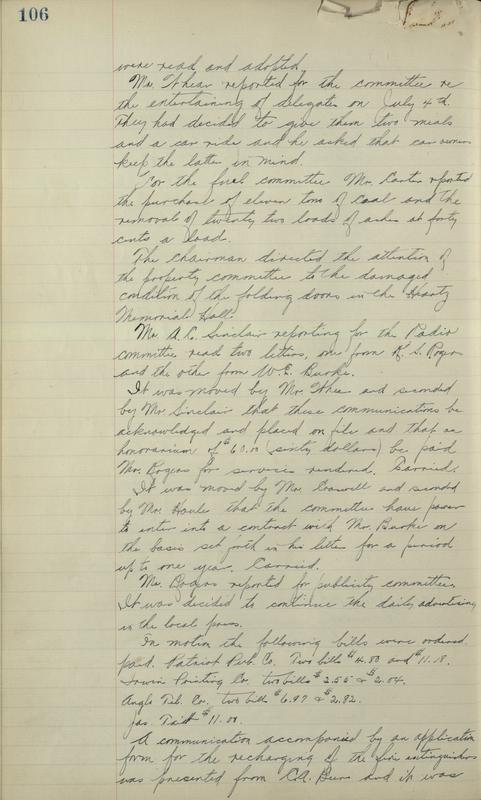 106
were read and adopted.
Mr. Shear reported for the committee re
the entertaining of delegates on July 4th.
They had decided to give them two meals
and a car ride and he asked that car owners
keep the latter in mind.
For the fuel committee Mr. Carter reported
the purchase of eleven tons of coal and the
removal of twenty two loads of ashes at forty
cents a load.
The chairman directed the attention of
the property committee to the damaged
condition of the folding doors in the
Memorial Hall.
Mr. A.C. Sinclair reporting for the Radio
committee read two letters, one from S. Rogers
and the other from W.E. Burke.
It was moved by Mr. and seconded
by Mr. Sinclair that these communications be
acknowledged and placed on file and that an
honorarium of $60.00 (sixty dollars) be paid
Mr. Rogers for services rendered. Carried.
It was moved by Mr. and seconded
by Mr. that the committee have power
to enter into a contract with Mr. Burke on
the basis set forth in his letter for a period
up to one year. Carried.
Mr. Rogers reported for publicity committee.
It was decided to continue the daily advertising
in the local press.
On motion the following bills were ordered
paid. Patriot Pub. Co. Two bills $4.80 and $11.18.
Irwin Printing Co. two bills $2.55 & $2.04.
two bills $6.97 & $2.92.
Jas. $11.00.
A communication accompanied by an application
form for the recharging of the fire extinguishers
was presented from and it was